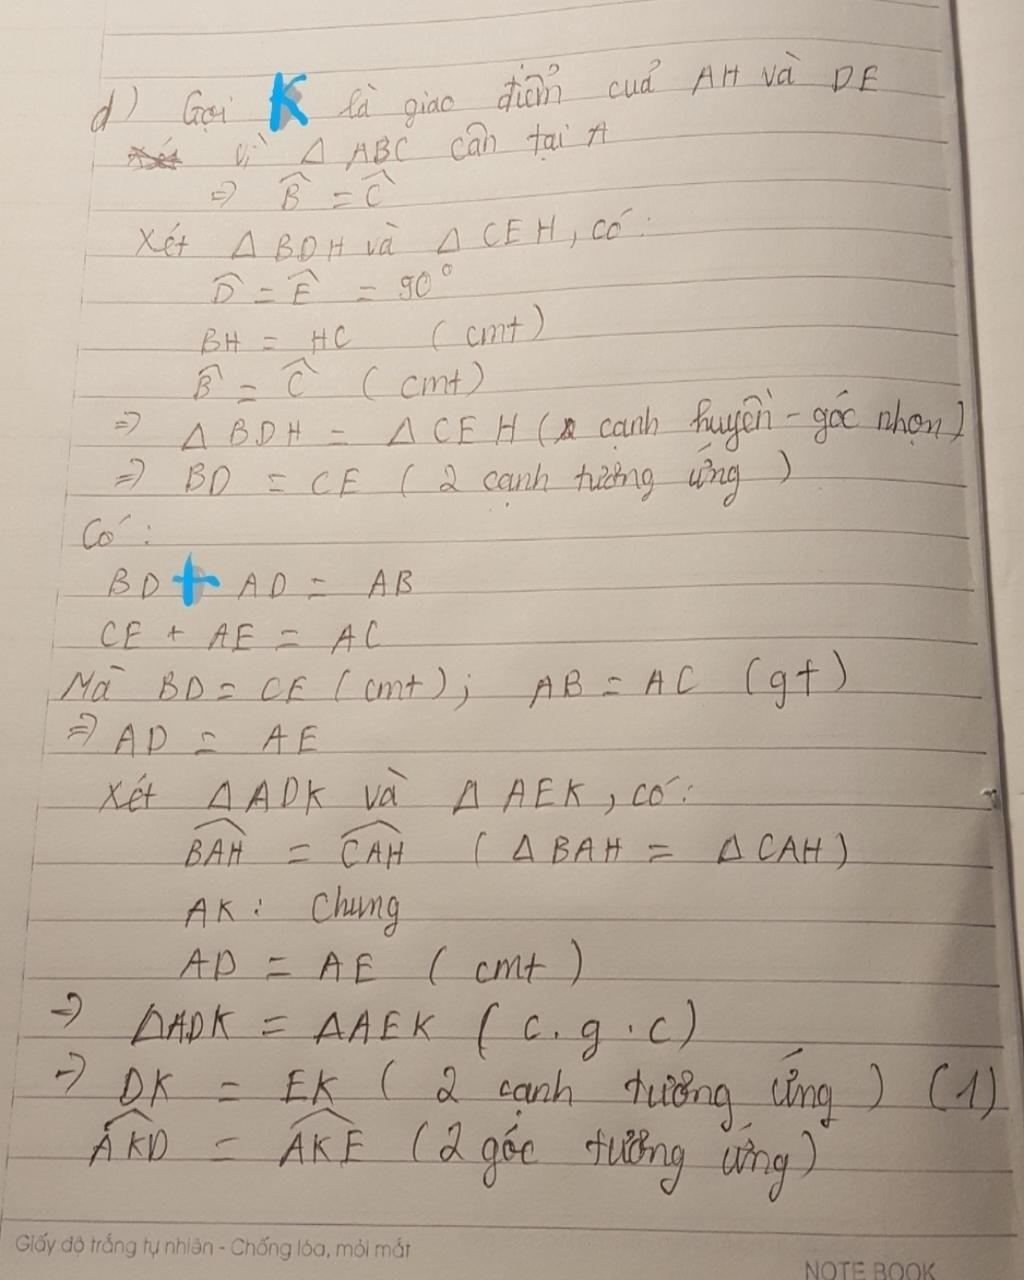 d) Gọi K là giao điểm cuả AH và DE
Vì Δ ABC cân tại A
=> B̂ = Ĉ
Xét Δ BDH và Δ CEH, có:
D̂ = Ê = 90°
BH = HC (cmt)
B̂ = Ĉ (cmt)
=> Δ BDH = Δ CEH ( cạnh huyền - góc nhọn)
=> BD = CE ( 2 cạnh tương ứng )
Có:
BD + AD = AB
CE + AE = AC
Mà BD = CE (cmt); AB = AC (gt)
=> AD = AE
Xét ΔADK và Δ AEK, có:
B̂AH = ĈAH ( Δ BAH = Δ CAH)
AK : Chung
AD = AE ( cmt )
=> ΔADK = ΔAEK ( c.g.c)
=> DK = EK ( 2 cạnh tương ứng ) (1)
ÂKD = ÂKE (2 góc tương ứng)
Giấy độ trắng tự nhiên - Chống lóa, mỏi mắt
NOTE BOOK